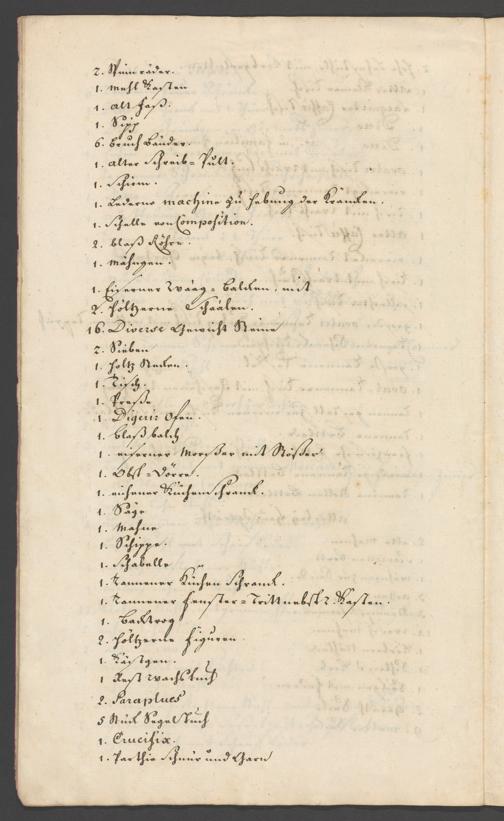 2. Spinräder.
1. Mehl Kasten
1. alt Faß.
1. Sipp
6. bruch bänder.
1. alter Schreib=Pult.
1. Schirm.
1. Lederne machine zu hebung der Krancken.
1. Schelle von Composition.
2. blaß Röhre.
1. 
1. Eiserner Waag=balcken, mit
2. höltzerne Schaalen.
16. Diverse Gewicht Steine
2. Sieben
1. Holtz
1. Tisch.
1. Preße
1. Digerir Ofen.
1. blaßbalch
1. eiserner Morßer mit Stößer
1. Obst=Dörre.
1. eichener Küchenschranck.
1. Säge
1. Mahne
1. Schippe.
1. Schabelle
1. Tannener Küchen Schranck.
1. Tannener Fenster=Tritt nebst 2. Kasten.
1. Backtrog
2. höltzerne Figuren.
1. Kästgen.
1 Rest Wachstuch
2. Paraplues
5 Stück Segeltuch
1. Crucifix.
1. Parthie Schnür und Garn